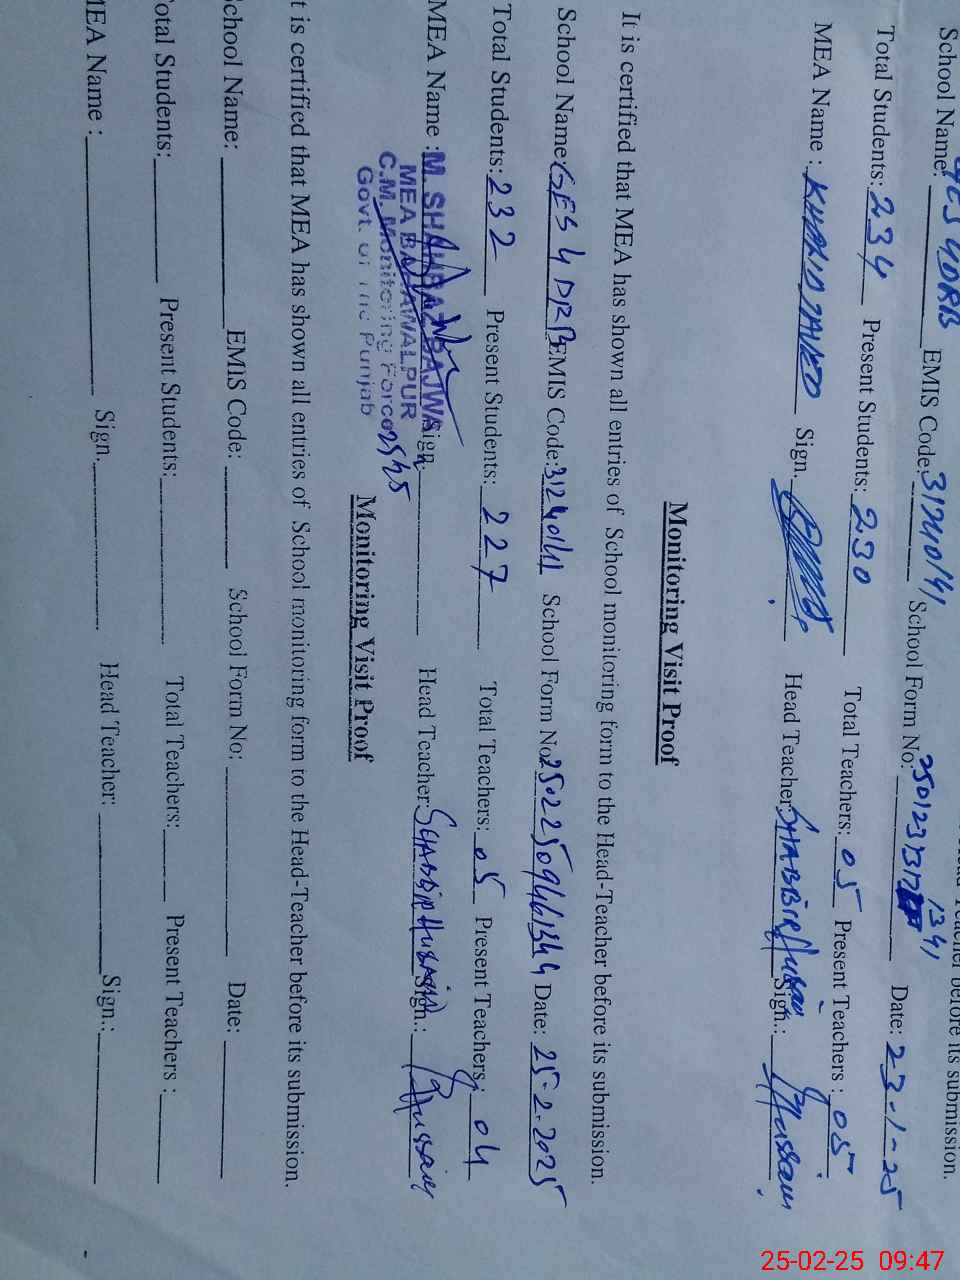 School Name: GES 4DRB EMIS Code: 31240141 School Form No: 1341
Total Students: 234 Present Students: 230 Total Teachers: 05 Present Teachers : 05 Date: 23-1-25
MEA Name : KHALID JAVED Sign. Head Teacher: SHABBIR Hussain Sign.: Hussain
Monitoring Visit Proof
It is certified that MEA has shown all entries of School monitoring form to the Head-Teacher before its submission.
School Name: GES 4 DRB EMIS Code: 31240141 School Form No: Date: 25-2-2025
Total Students: 232 Present Students: 227 Total Teachers: 05 Present Teachers : 04
MEA Name : M. SHAHBAZ BAJWA Sign. Head Teacher: SHABBIR HUSSAIN Sign.: Hussain
MEA BAHAWALPUR
C.M. Monitoring Force
Govt. of The Punjab
Monitoring Visit Proof
t is certified that MEA has shown all entries of School monitoring form to the Head-Teacher before its submission.
chool Name: EMIS Code: School Form No: Date:
otal Students: Present Students: Total Teachers: Present Teachers :
IEA Name : Sign. Head Teacher: Sign.:
25-02-25 09:47